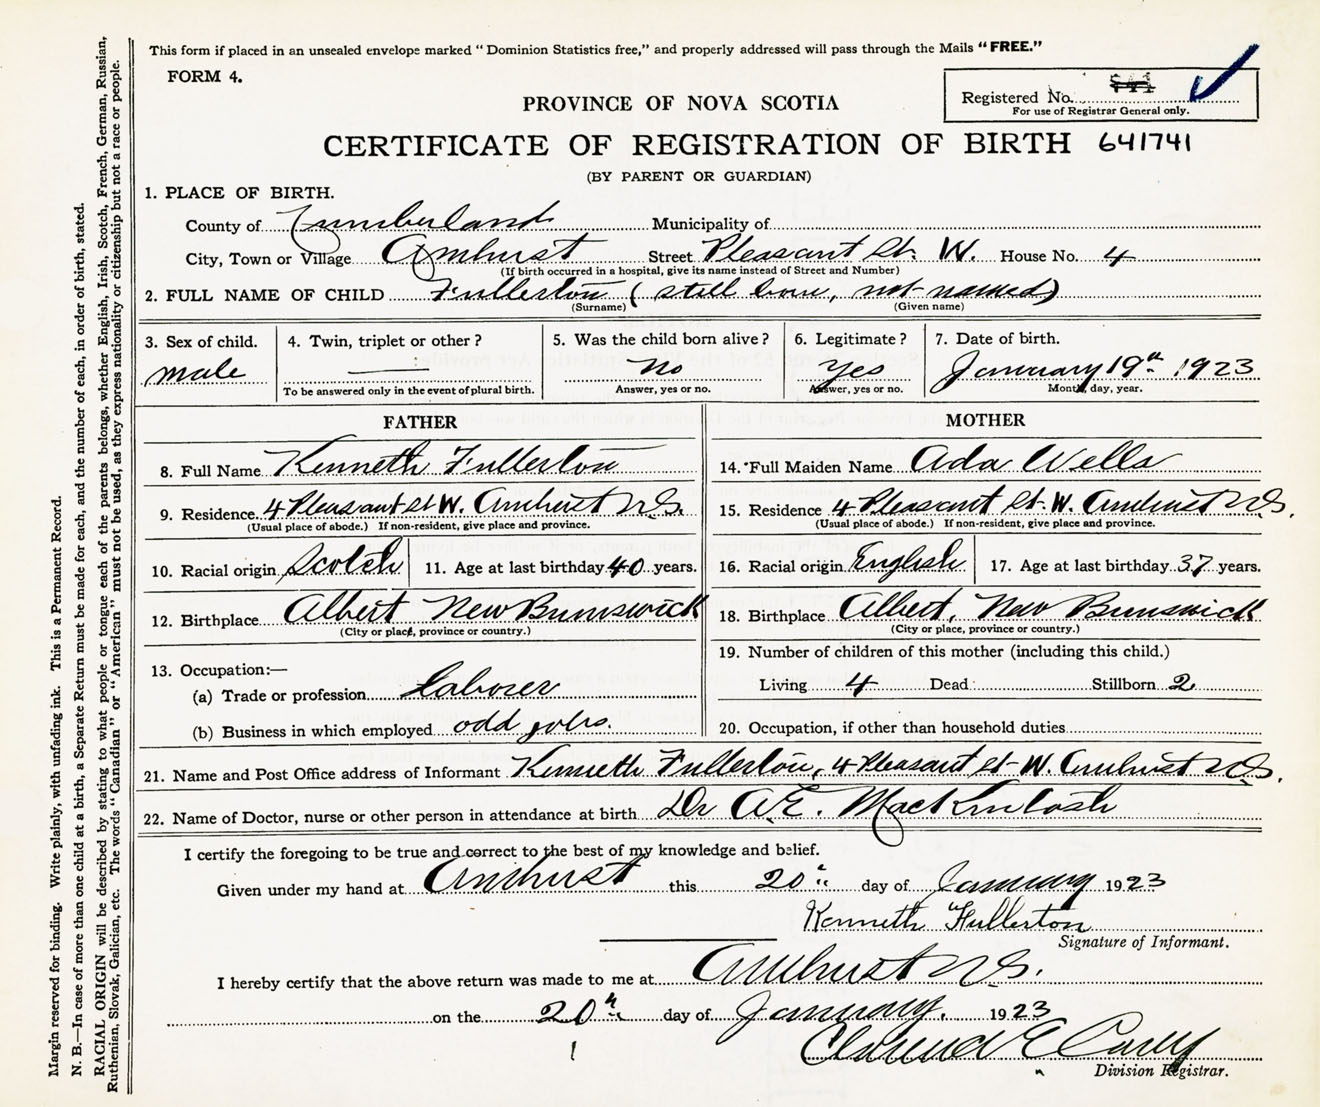 This form if placed in an unsealed envelope marked "Dominion Statistics free," and properly addressed will pass through the Mails "FREE."
FORM 4.
Registered No.
For use of Registrar General only.
PROVINCE OF NOVA SCOTIA
CERTIFICATE OF REGISTRATION OF BIRTH 641741
(BY PARENT OR GUARDIAN)
1. PLACE OF BIRTH.
County of Cumberland Municipality of
City, Town or Village Amherst Street Pleasant St. W. House No. 4
(If birth occurred in a hospital, give its name instead of Street and Number)
2. FULL NAME OF CHILD Fullerton (still born, not named)
(Surname) (Given name)
3. Sex of child. 4. Twin, triplet or other? 5. Was the child born alive? 6. Legitimate? 7. Date of birth.
male No Yes January 19th 1923
To be answered only in the event of plural birth. Answer, yes or no. Answer, yes or no. Month, day, year.
FATHER MOTHER
8. Full Name Kenneth Fullerton 14. Full Maiden Name Ada Wells
9. Residence 4 Pleasant St W. Amherst N.S. 15. Residence 4 Pleasant St. W. Amherst N.S.
(Usual place of abode.) If non-resident, give place and province. (Usual place of abode.) If non-resident, give place and province.
10. Racial origin Scotch 11. Age at last birthday 40 years. 16. Racial origin English 17. Age at last birthday 37 years.
12. Birthplace Albert New Brunswick 18. Birthplace Albert, New Brunswick
(City or place, province or country.) (City or place, province or country.)
13. Occupation:— 19. Number of children of this mother (including this child.)
(a) Trade or profession Laborer Living 4 Dead Stillborn 2
(b) Business in which employed odd jobs. 20. Occupation, if other than household duties
21. Name and Post Office address of Informant Kenneth Fullerton, 4 Pleasant St-W. Amherst N.S.
22. Name of Doctor, nurse or other person in attendance at birth Dr A.E. MacKintosh
I certify the foregoing to be true and correct to the best of my knowledge and belief.
Given under my hand at Amherst this 20th day of January 1923
Kenneth Fullerton
Signature of Informant.
I hereby certify that the above return was made to me at Amherst N.S.
on the 20th day of January. 1923
Division Registrar.
Margin reserved for binding. Write plainly, with unfading ink. This is a Permanent Record.
N. B.—In case of more than one child at a birth, a Separate Return must be made for each, and the number of each, in order of birth, stated.
RACIAL ORIGIN will be described by stating to what people or tongue each of the parents belongs, whether English, Irish, Scotch, French, German, Russian,
Ruthenian, Slovak, Galician, etc. The words "Canadian" or "American" must not be used, as they express nationality or citizenship but not a race or people.